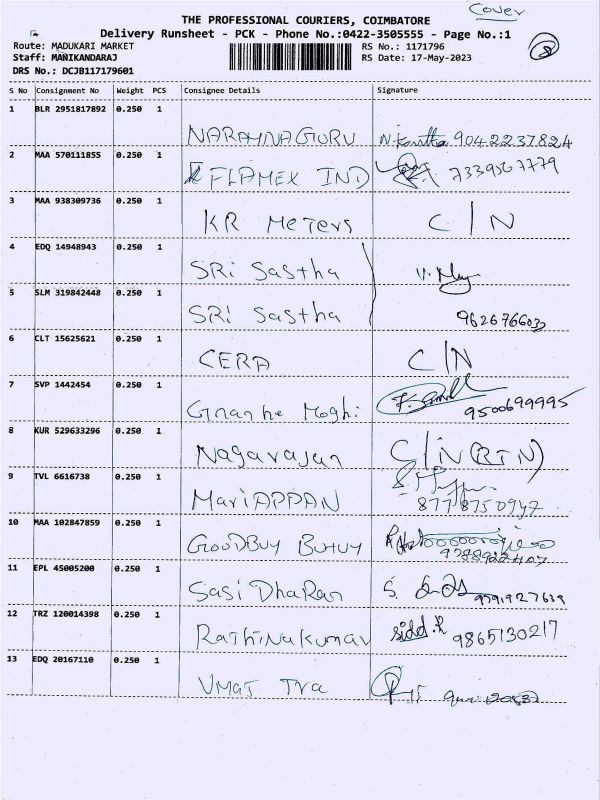 Cover
THE PROFESSIONAL COURIERS, COIMBATORE
Delivery Runsheet - PCK - Phone No.:0422-3505555 - Page No.:1
Route: MADUKARI MARKET RS No.: 1171796
Staff: MANIKANDARAJ RS Date: 17-May-2023
DRS No.: DCJB117179601
S No Consignment No Weight PCS Consignee Details Signature
1 BLR 2951817892 0.250 1
NARAYNAGURU 9042237824
2 MAA 570111855 0.250 1
FLAMEX IND 7339567779
3 MAA 938309736 0.250 1
KR Meters C/N
4 EDQ 14948943 0.250 1
SRi Sastha
5 SLM 319842448 0.250 1
SRi Sastha
6 CLT 15625621 0.250 1
CERA C/N
7 SVP 1442454 0.250 1
9500699995
8 KUR 529633296 0.250 1
Nagarajan C/N (RTN)
9 TVL 6616738 0.250 1
MariAPPAN 8778750947
10 MAA 102847859 0.250 1
GOODBUY
11 EPL 45005200 0.250 1
Sasi DhaRan
12 TRZ 120014398 0.250 1
Rathinakumar 9865130217
13 EDQ 20167110 0.250 1